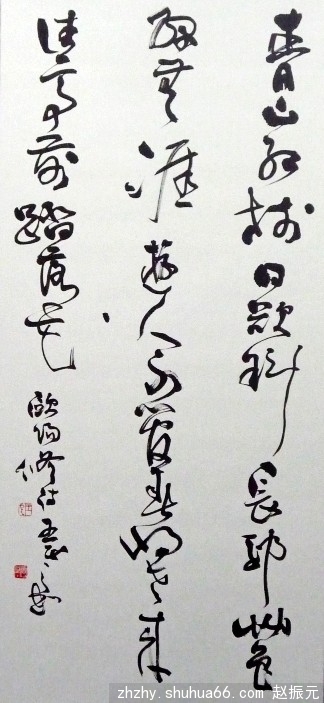 青山红树日欲斜长郊草色
绿無涯遊人不管春将老来
往亭前踏落花
欧阳修诗
zhzhy.shuhua66.com 赵振元